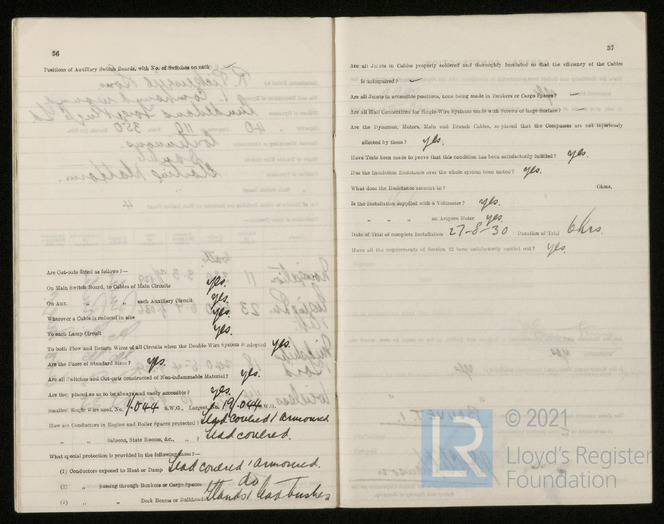 56
Positions of Auxiliary Switch Boards, with No. of Switches on each
Are Cut-outs fitted as follows:—
On Main Switch Board, to Cables of Main Circuits yes.
On Aux. " " each Auxiliary Circuit yes.
Wherever a Cable is reduced in size yes.
To each Lamp Circuit yes.
To both Flow and Return Wires of all Circuits when the Double Wire System is adopted yes.
Are the Fuses of Standard Sizes? yes.
Are all Switches and Cut-outs constructed of Non-inflammable Material? yes.
Are they placed so as to be always and easily accessible? yes.
Smallest Single Wire used, No. 1/.044 S.W.G., Largest, No. 19/.044 S.W.G.
How are Conductors in Engine and Boiler Spaces protected? Lead covered & armoured
" " Saloons, State Rooms, &c., " ? Lead covered.
What special protection is provided in the following cases?—
(1) Conductors exposed to Heat or Damp Lead covered & armoured.
(2) " passing through Bunkers or Cargo Spaces do
(3) " " Deck Beams or Bulkheads Glands & lead bushes
57
Are all Joints in Cables properly soldered and thoroughly insulated so that the efficiency of the Cables
is unimpaired? —
Are all Joints in accessible positions, none being made in Bunkers or Cargo Spaces? —
Are all Hull Connections for Single-Wire Systems made with Screws of large Surface? —
Are the Dynamos, Motors, Main and Branch Cables, so placed that the Compasses are not injuriously
affected by them? yes.
Have Tests been made to prove that this condition has been satisfactorily fulfilled? yes.
Has the Insulation Resistance over the whole system been tested? yes.
What does the Resistance amount to? Ohms.
Is the Installation supplied with a Voltmeter? yes.
" " " an Ampere Meter yes.
Date of Trial of complete Installation 27-8-30 Duration of Trial 6 hrs.
Have all the requirements of Section 42 been satisfactorily carried out? yes.
LR
© 2021
Lloyd's Register
Foundation